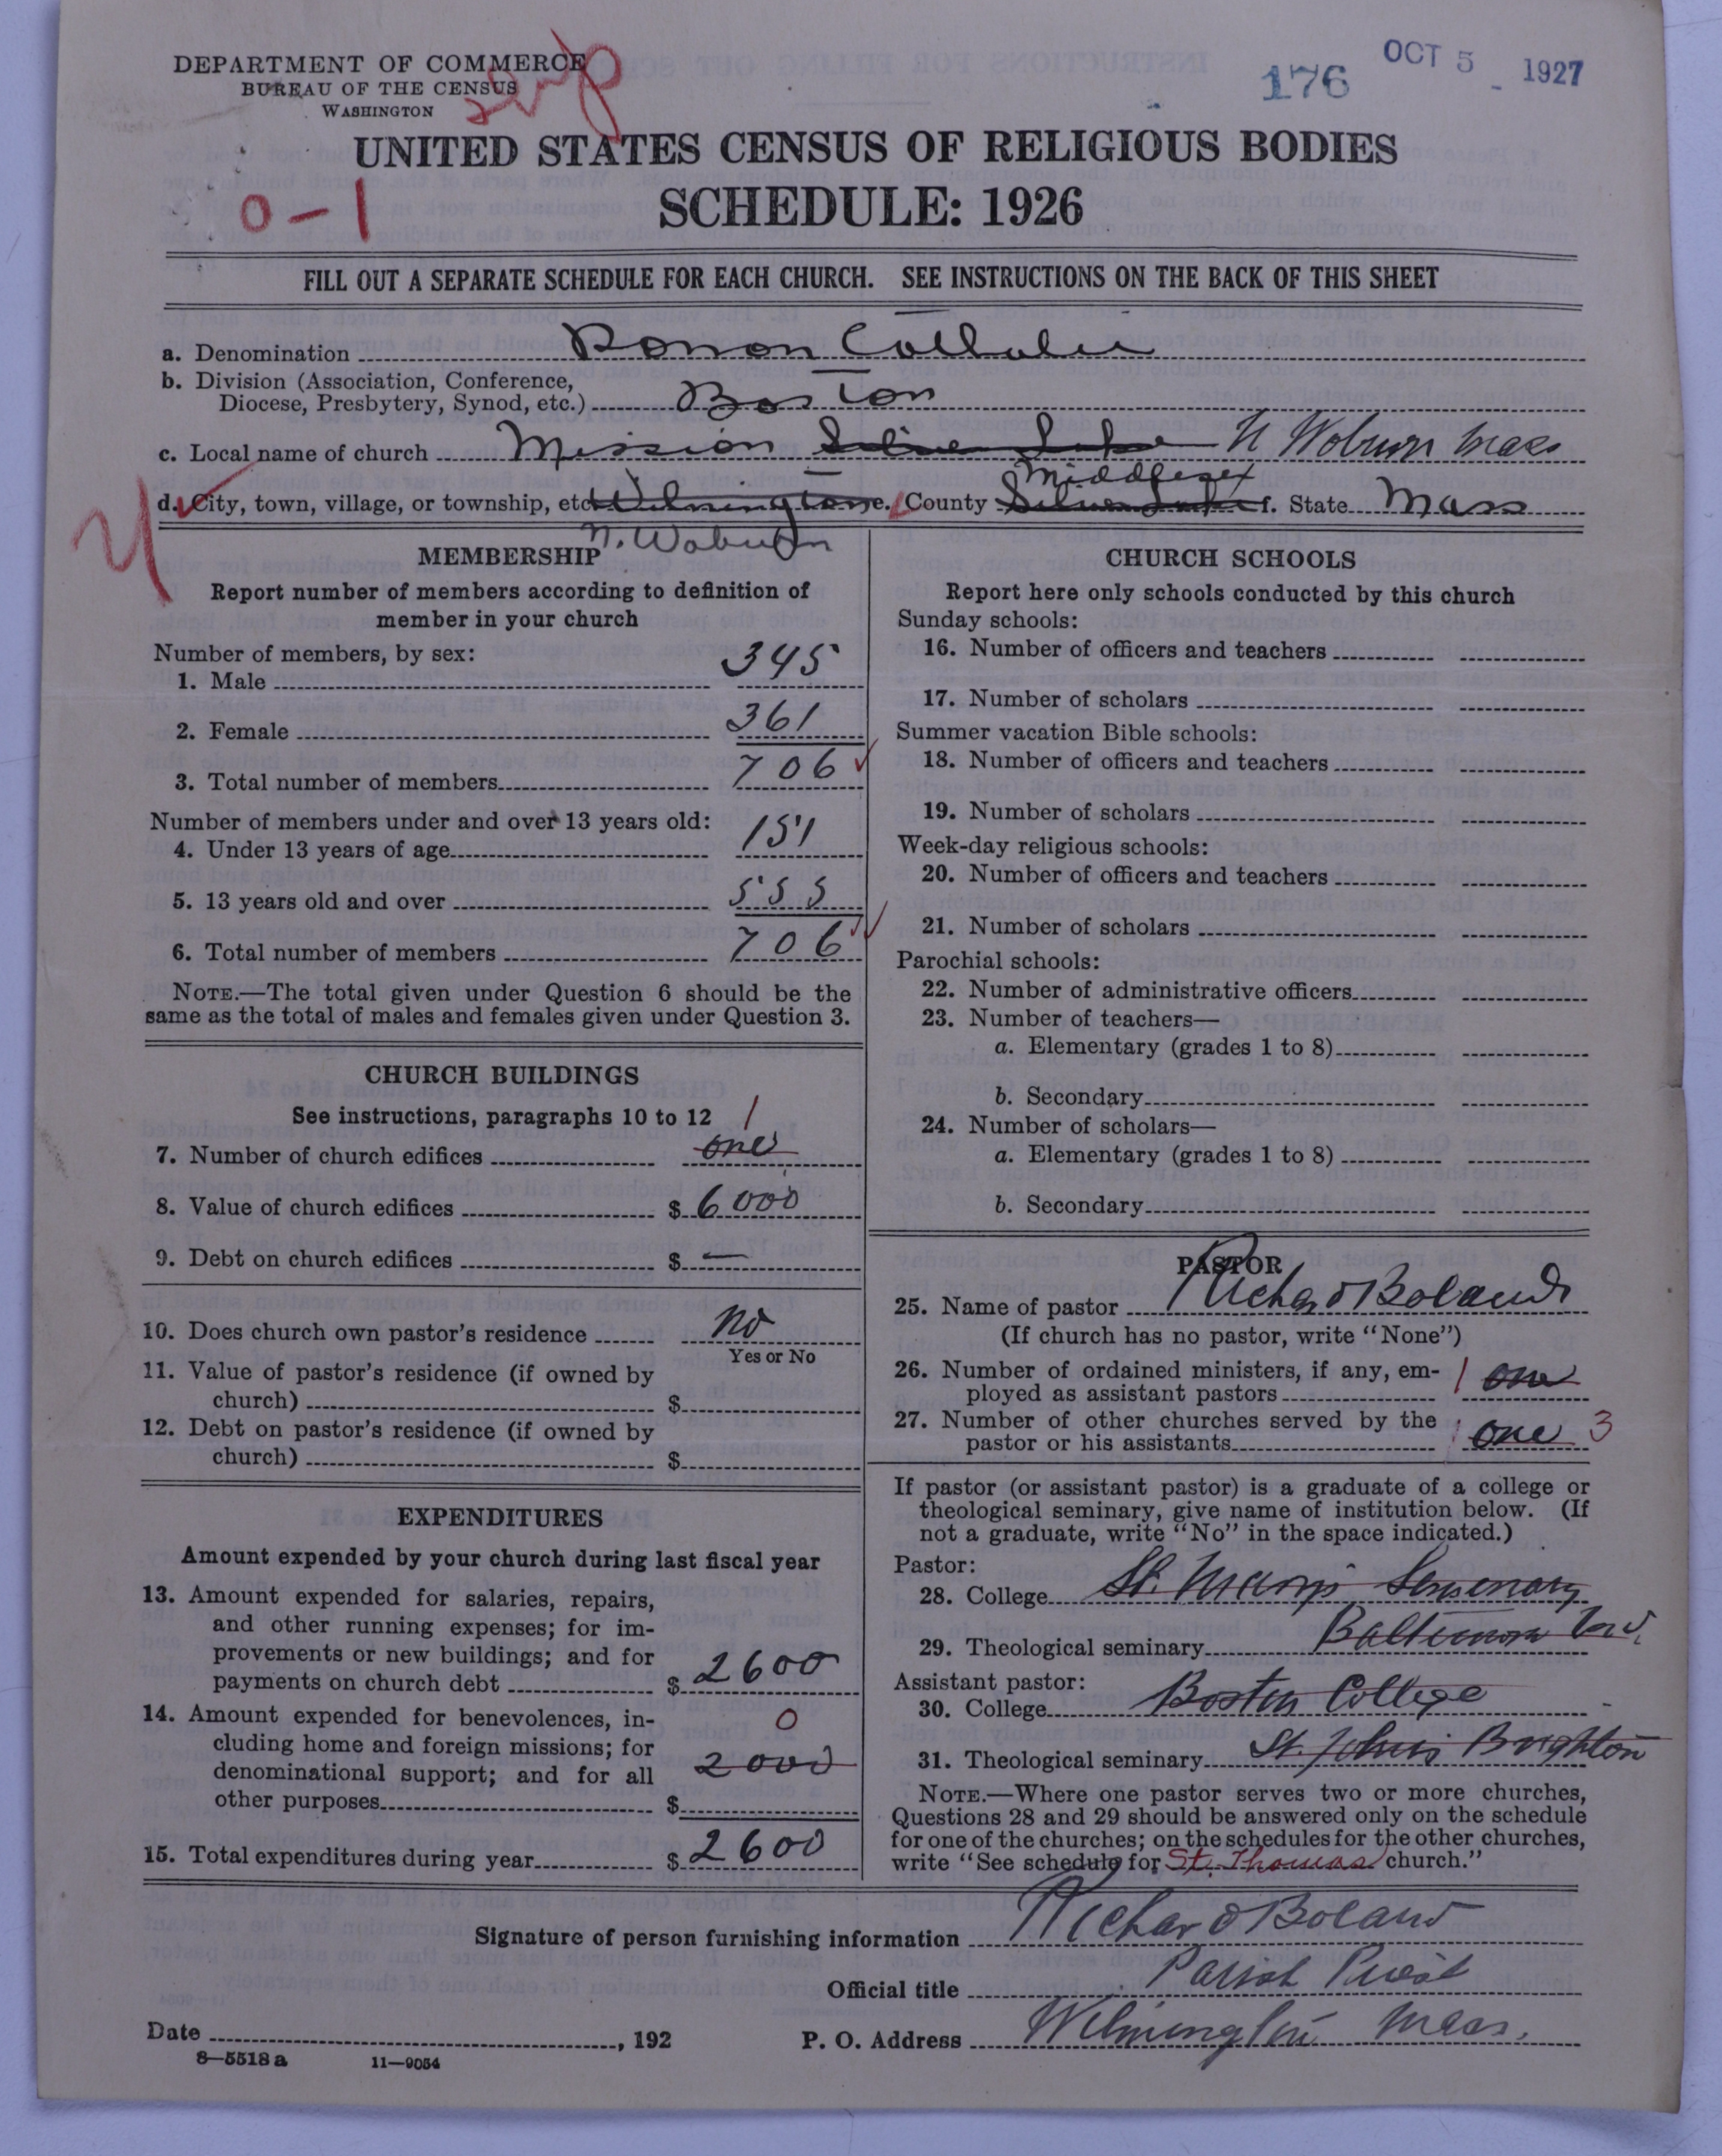 DEPARTMENT OF COMMERCE
BUREAU OF THE CENSUS
WASHINGTON
176
OCT 5 1927
UNITED STATES CENSUS OF RELIGIOUS BODIES
0-1
SCHEDULE: 1926
FILL OUT A SEPARATE SCHEDULE FOR EACH CHURCH. SEE INSTRUCTIONS ON THE BACK OF THIS SHEET
a. Denomination Roman Catholic
b. Division (Association, Conference,
Diocese, Presbytery, Synod, etc.) Boston
c. Local name of church Mission Silver Lake N Woburn Mass
Middlesex
d. City, town, village, or township, etc. Wilmington e. County Silver Lake f. State Mass
N. Woburn
MEMBERSHIP
Report number of members according to definition of
member in your church
Number of members, by sex:
1. Male 345
2. Female 361
3. Total number of members 706
Number of members under and over 13 years old:
4. Under 13 years of age 151
5. 13 years old and over 555
6. Total number of members 706
NOTE.—The total given under Question 6 should be the
same as the total of males and females given under Question 3.
CHURCH BUILDINGS
See instructions, paragraphs 10 to 12
1
7. Number of church edifices one
8. Value of church edifices $ 6000
9. Debt on church edifices $ —
10. Does church own pastor's residence no
Yes or No
11. Value of pastor's residence (if owned by
church) $
12. Debt on pastor's residence (if owned by
church) $
EXPENDITURES
Amount expended by your church during last fiscal year
13. Amount expended for salaries, repairs,
and other running expenses; for im-
provements or new buildings; and for
payments on church debt $ 2600
14. Amount expended for benevolences, in- 0
cluding home and foreign missions; for
denominational support; and for all 2000
other purposes $
15. Total expenditures during year $ 2600
CHURCH SCHOOLS
Report here only schools conducted by this church
Sunday schools:
16. Number of officers and teachers
17. Number of scholars
Summer vacation Bible schools:
18. Number of officers and teachers
19. Number of scholars
Week-day religious schools:
20. Number of officers and teachers
21. Number of scholars
Parochial schools:
22. Number of administrative officers
23. Number of teachers—
a. Elementary (grades 1 to 8)
b. Secondary
24. Number of scholars—
a. Elementary (grades 1 to 8)
b. Secondary
PASTOR
25. Name of pastor Richard Boland
(If church has no pastor, write "None")
26. Number of ordained ministers, if any, em-
ployed as assistant pastors 1 one
27. Number of other churches served by the
pastor or his assistants 1 one 3
If pastor (or assistant pastor) is a graduate of a college or
theological seminary, give name of institution below. (If
not a graduate, write "No" in the space indicated.)
Pastor:
28. College St. Mary's Seminary
29. Theological seminary Baltimore Md.
Assistant pastor:
30. College Boston College
31. Theological seminary St. John's Brighton
NOTE.—Where one pastor serves two or more churches,
Questions 28 and 29 should be answered only on the schedule
for one of the churches; on the schedules for the other churches,
write "See schedule for St. Thomas church."
Signature of person furnishing information Richard Boland
Official title Parish Priest
Date , 192
P. O. Address Wilmington Mass.
8—5518 a 11—9054